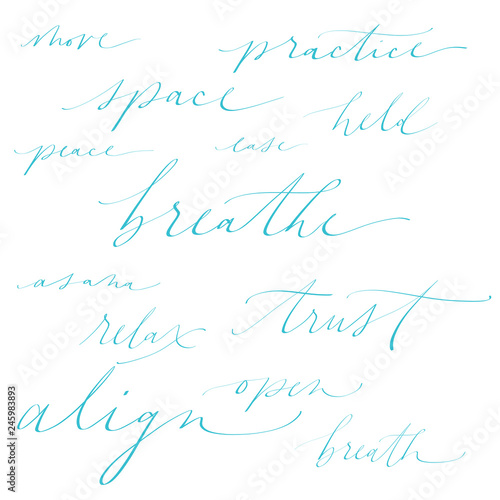 move
practice
space
held
peace
ease
breathe
asana
relax
trust
open
align
breath
Adobe Stock | #245983893